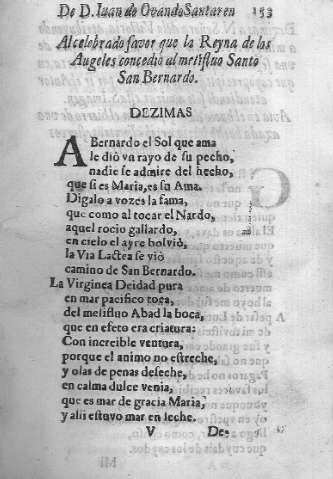 De D. Iuan de Ovando Santaren 153
Al celebrado favor que la Reyna de los
Angeles concediò al melifluo Santo
San Bernardo.
DEZIMAS
A Bernardo el Sol que ama
le diò vn rayo de su pecho,
nadie se admire del hecho,
que si es Maria, es su Ama.
Digalo a vozes la fama,
que como al tocar el Nardo,
aquel rocio gallardo,
en cielo el ayre bolviò,
la Via Lactea se viò
camino de San Bernardo.
La Virginea Deidad pura
en mar pacifico toca,
del melifluo Abad la boca,
que en efeto era criatura:
Con increible ventura,
porque el animo no estreche,
y olas de penas deseche,
en calma dulce venia,
que es mar de gracia Maria,
y alli estuvo mar en leche.
V De-